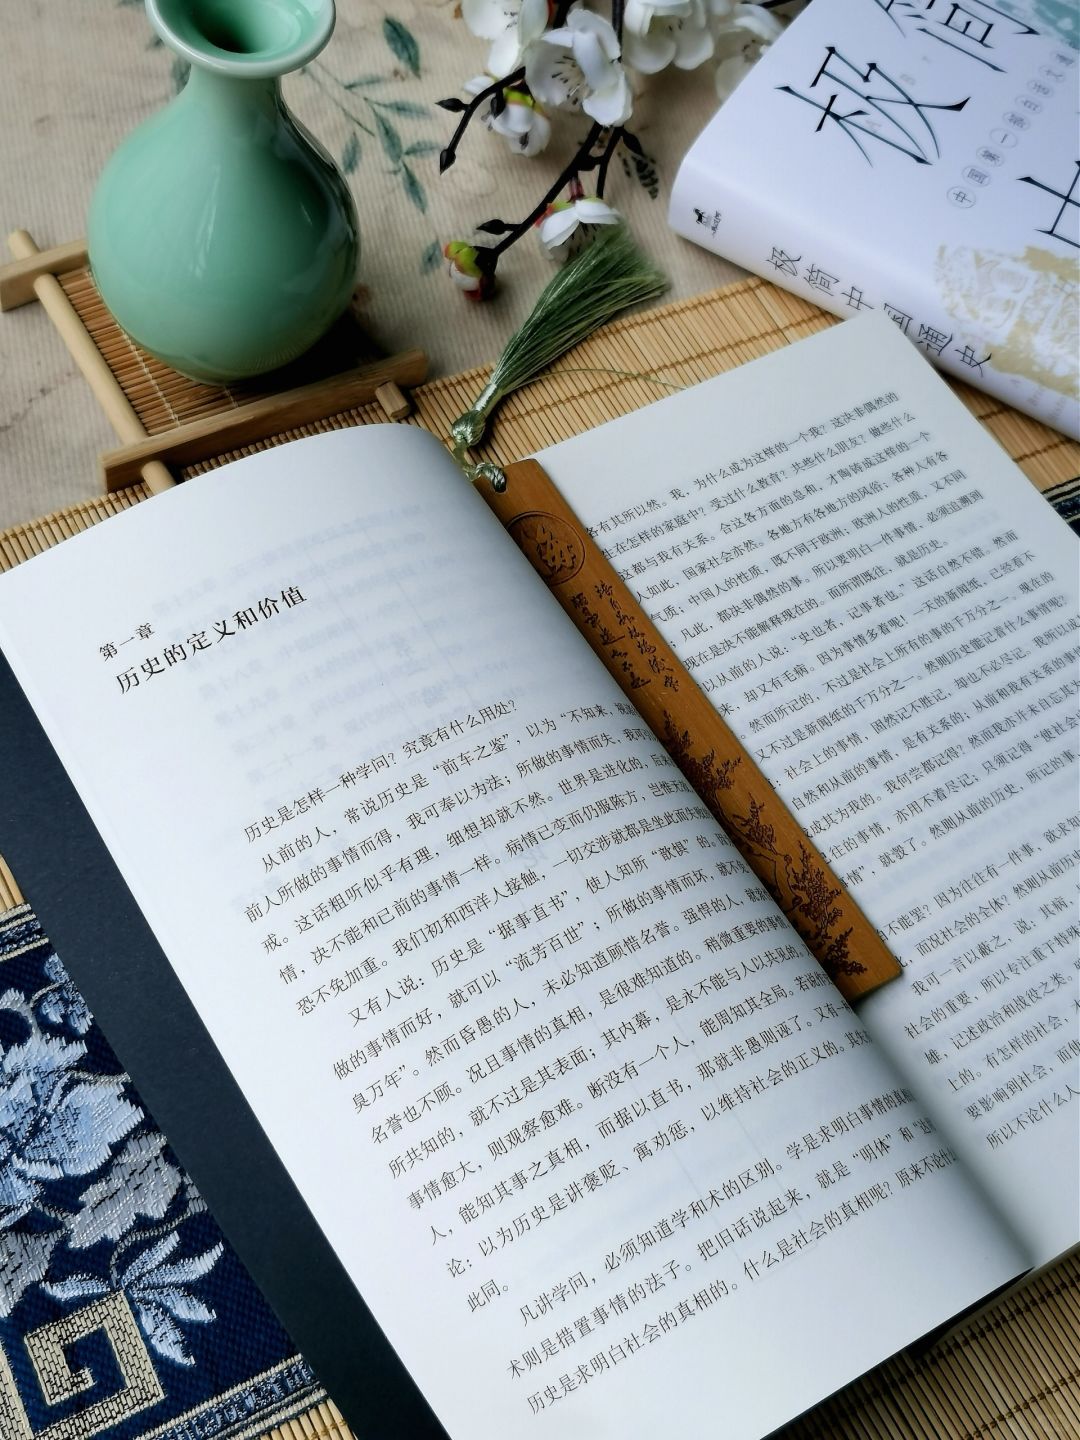 极简
中国第一部白话文通
极简中国通史
第一章
历史的定义和价值
历史是怎样一种学问？究竟有什么用处？
从前的人，常说历史是“前车之鉴”，以为“不知来，视
前人所做的事情而得，我可奉以为法；所做的事情而失，我可
戒。这话粗听似乎有理，细想却就不然。世界是进化的，后来
情，决不能和已前的事情一样。病情已变而仍服陈方，当惟无
恐不免加重。我们初和西洋人接触，一切交涉就都是坐此而失败
又有人说：历史是“据事直书”，使人知所“歆惧”的。因
做的事情而好，就可以“流芳百世”；所做的事情而坏，就不免
臭万年”。然而昏愚的人，未必知道顾惜名誉。强悍的人，就
名誉也不顾。况且事情的真相，是很难知道的。稍微重要的事情
所共知的，就不过是其表面；其内幕，是永不能与人以共见的。
事情愈大，则观察愈难。断没有一个人，能周知其全局。若说作
人，能知其事之真相，而据以直书，那就非愚则诬了。又有一
论：以为历史是讲褒贬、寓劝惩，以维持社会的正义的。其失
此同。
凡讲学问，必须知道学和术的区别。学是求明白事情的真相
术则是措置事情的法子。把旧话说起来，就是“明体”和“达
历史是求明白社会的真相的。什么是社会的真相呢？原来不论什
各有其所以然。我，为什么成为这样的一个我？这决非偶然的
生在怎样的家庭中？受过什么教育？共些什么朋友？做些什么
这都与我有关系。合这各方面的总和，才陶铸成这样的一个
人如此，国家社会亦然。各地方有各地方的风俗；各种人有各
气质；中国人的性质，既不同于欧洲；欧洲人的性质，又不同
凡此，都决非偶然的事。所以要明白一件事情，必须追溯到
现在是决不能解释现在的。而所谓既往，就是历史。
以从前的人说：“史也者，记事者也。”这话自然不错。然而
来，却又有毛病。因为事情多着呢！一天的新闻纸，已经看不
然而所记的，不过是社会上所有的事的千万分之一。现在的
又不过是新闻纸的千万分之一。然则历史能记着什么事情呢？
社会上的事情，固然记不胜记，却也不必尽记。我所以成
自然和从前的事情，是有关系的；从前和我有关系的事情
成其为我的。我何尝都记得？然而我亦并未自忘其为
往的事情，亦用不着尽记；只须记得“使社会
事情”，就彀了。然则从前的历史，所记的事
不能罢？因为往往有一件事，欲求知
而况社会的全体？然则从前
我可一言以蔽之，说：其病，
社会的重要，所以专注重于特殊
雄，记述政治和战役之类。
上的。有怎样的社会，才
要影响到社会，而使
所以不论什么人